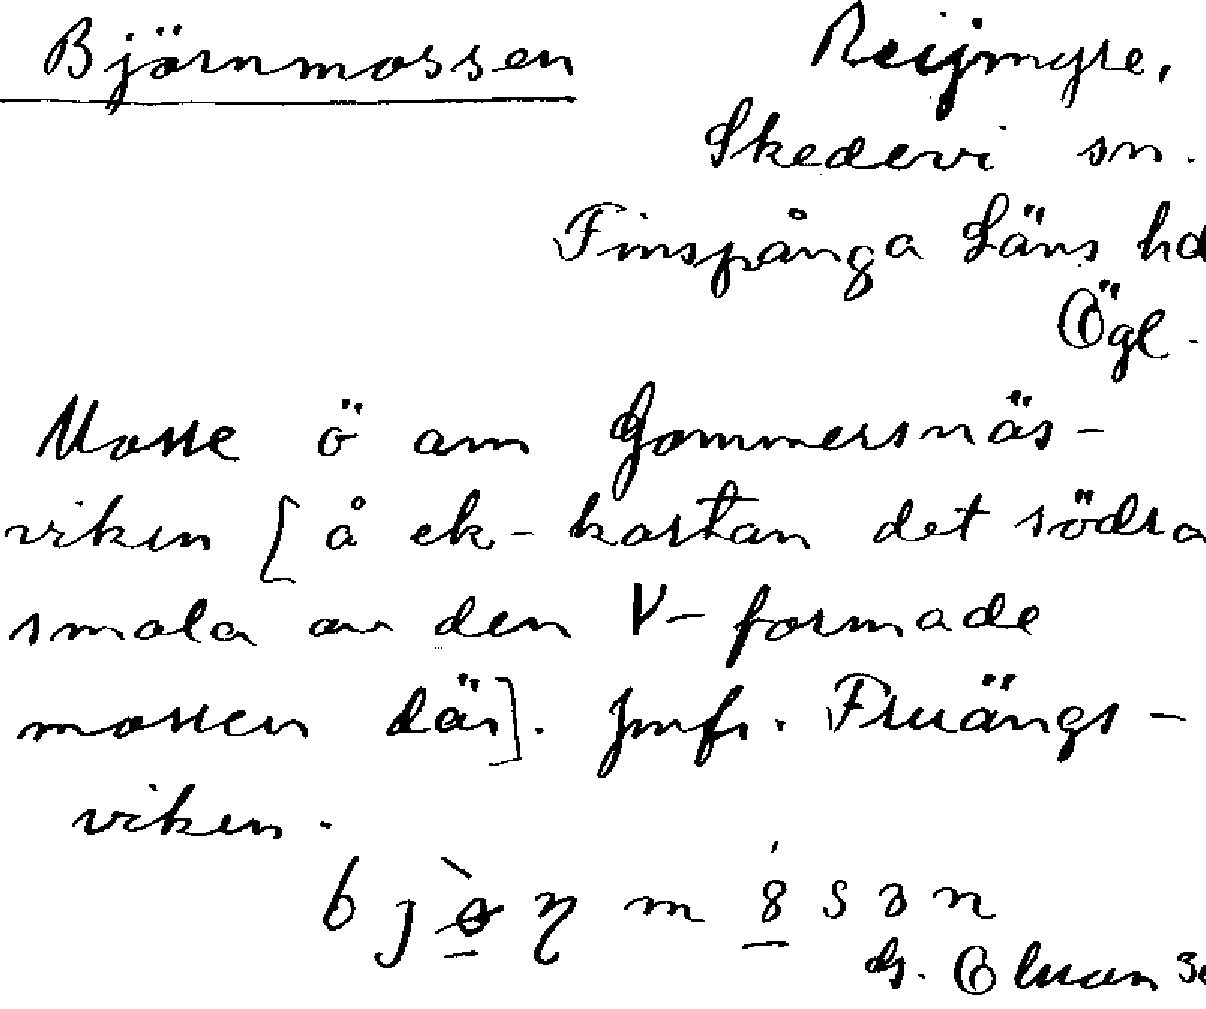 Björnmossen Reijmyre,
Skedevi sn.
Finspånga Läns hd
Ögl.
Mosse ö om Gommersnäs-
viken [å ek-kartan det södra
smala av den V-formade
mossen där]. Jmfr. Fruängs-
viken.